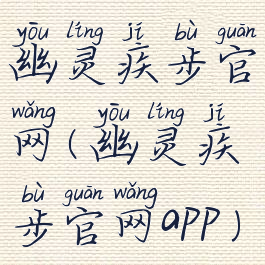 yōu líng jí bù guān
幽灵疾步官
wǎng yōu líng jí
网(幽灵疾
bù guān wǎng
步官网app)